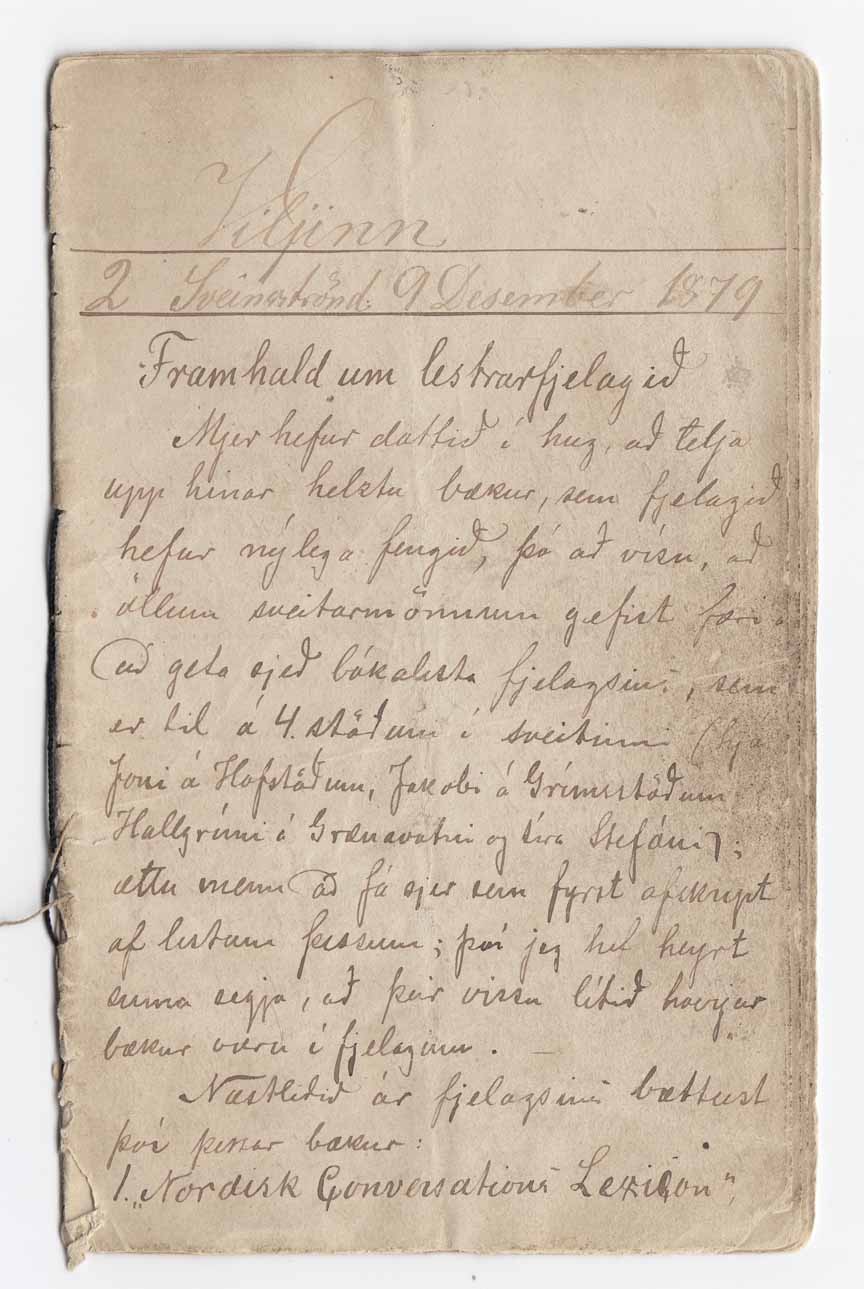 Viljinn
2 Sveinsströnd. 9 Desember 1879
Framhald um lestrarfjelagið
Mjer hefur dottið í hug, að telja
upp hinar helztu bækur, sem fjelagið
hefur nýlega fengið, þó að vísu, að
öllum sveitarmönnum gefist færi
að geta sjeð bókalista fjelagsins, sem
er til á 4. stöðum í sveitinni (hjá
Jóni á Hofstöðum, Jakobi á Grímsstöðum
Hallgrími á Grænavatni og síra Stefáni);
ættu menn að fá sjer sem fyrst afskript
af listum þessum; því jeg hef heyrt
suma segja, að þeir vissu lítið hverjar
bækur væru í fjelaginu. —
Næstliðið ár fjelagsins bættust
því þessar bækur:
1. „Nordisk Conversations Lexicon",